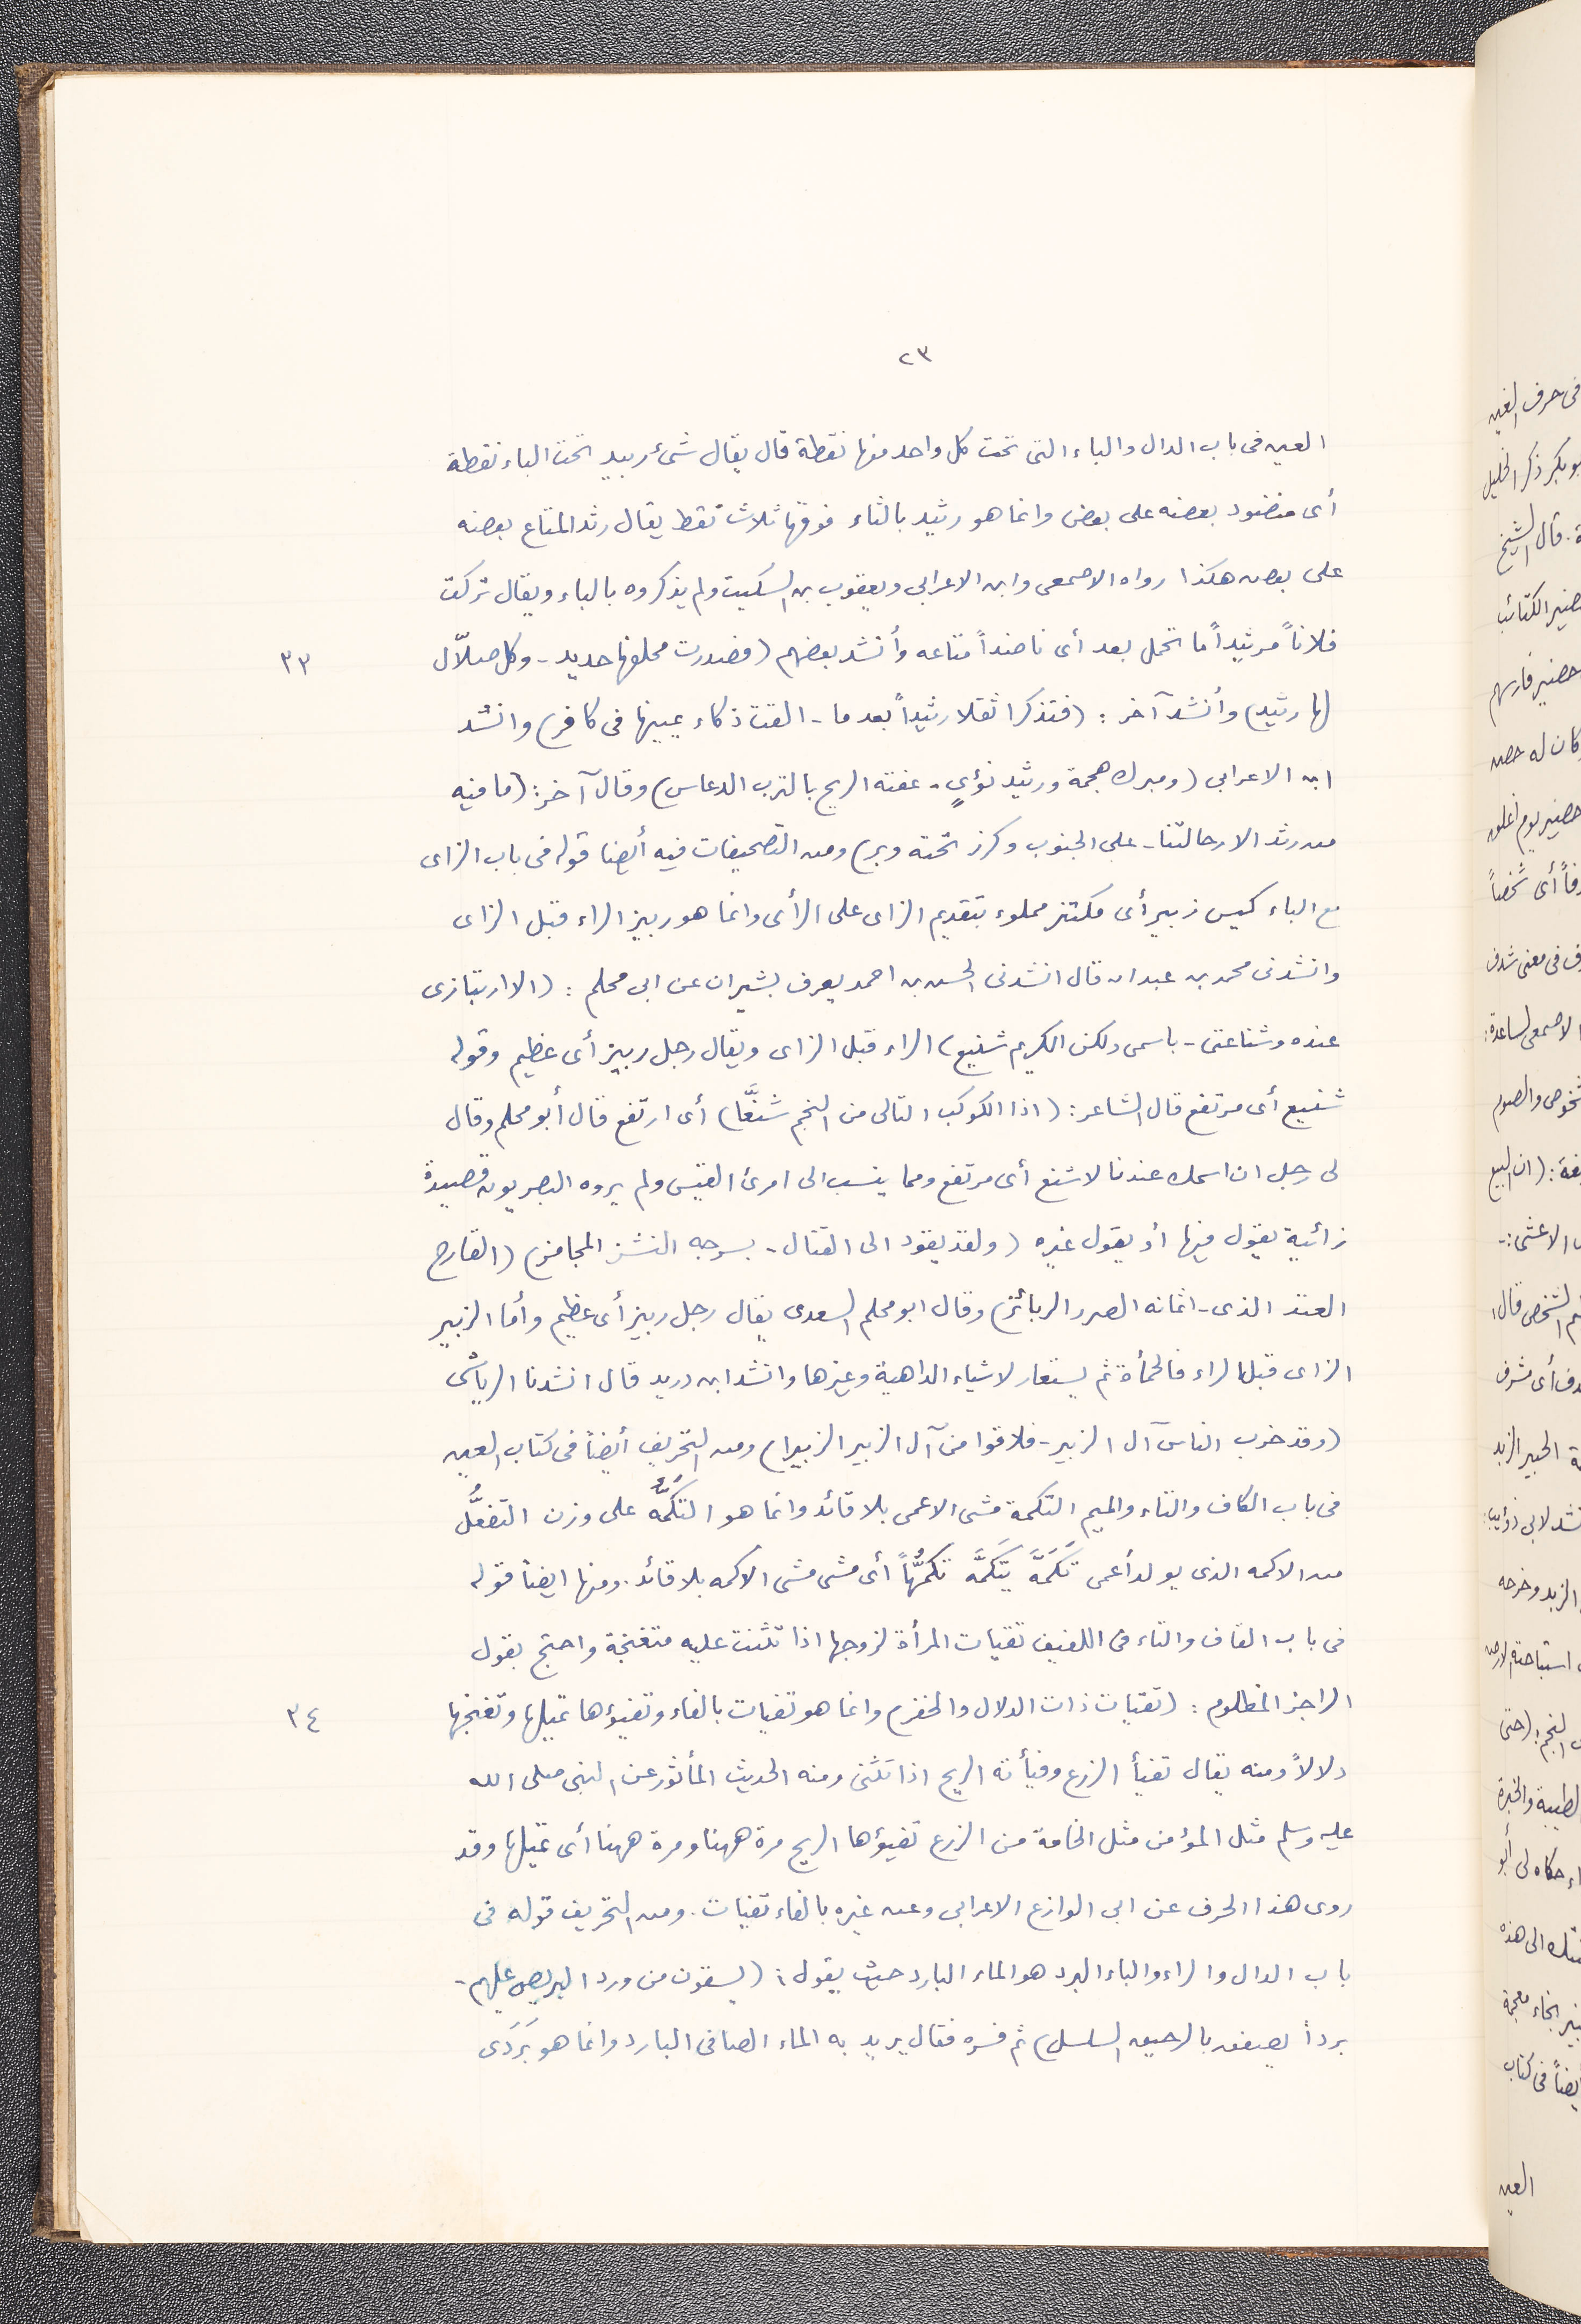 ٢٣
العين فى باب الدال والباء التى تحت كل واحد منها نقطة قال يقال شئ ربيد تحت الباء نقطة
أى منضود بعضه على بعض وانما هو رثيد بالثاء فوقها ثلاث نقط يقال رثد المتاع بعضه
على بعض هكذا رواه الاصمعى وابن الاعرابى ويعقوب بن السكيت ولم يذكروه بالباء ويقال تركت
فلاناً مرثيداً ما تحمل بعد أى ناضداً متاعه وأنشد بعضهم (فصدرت محلفها حديد - وكل صلاّل
٣٣
لها رثيد) وأنشد آخر : (فتذكرا ثقلا رثيداً بعدما - القت ذكاء يمينها فى كافر) وانشد
ابن الاعرابى (ومبرك هجمة ورثيد نؤىٍ - عفته الريح بالترب الدعاس) وقال آخر : (ما فيه
من رثد الا رحالتنا - على الجنوب وكرز تحته وبر) ومن التصحيفات فيه أيضا قوله فى باب الزاى
مع الباء كيس زبير أى مكتنز مملوء بتقديم الزاى على الرأى وانما هو ربيز الراء قبل الزاى
وانشدنى محمد بن عبدان قال انشدنى الحسن بن احمد يعرف بشيران عن ابى محلم : (الا ارتبازى
عنده وشناعتى - باسمى ولكن الكريم شنيع) الراء قبل الزاى ويقال رجل ربيز أى عظيم وقوله
شنيع أى مرتفع قال الشاعر : (اذا الكوكب التالى من النجم شنَّعا) أى ارتفع قال أبو محلم وقال
لى رجل ان اسمك عندنا لاشنع أى مرتفع ومما ينسب الى امرئ القيس ولم يروه البصريون قصيدة
زائية يقول فيها أو يقول غيره (ولقد يقود الى القتال - بسرجه النشز المجامز) (القارح
العتد الذى - اثمانه الصرر الربائز) وقال ابو محلم السعدى يقال رجل ربيز أى عظيم وأما الزبير
الزاى قبل الراء فالحمأة ثم يستعار لاشياء الداهية وغيرها وانشد ابن دريد قال انشدنا الرياشى
(وقد خرب الناس آل الزبير - فلاقوا من آل الزبير الزبيرا) ومن التحريف أيضاً فى كتاب العين
فى باب الكاف والتاء والميم التكمة مشى الاعمى بلا قائد وانما هو التكَمُّه على وزن التفعُّل
من الاكمه الذى يولد أعمى تَكَمَّهَ يَتَكَمَّه تكمُّهاً أى مشى مشى الاكمه بلا قائد. ومنها ايضاً قوله
فى باب القاف والتاء فى اللفيف تقيات المرأة لزوجها اذا تثنت عليه متغنجة واحتج بقول
الراجز المظلوم : (تقيات ذات الدلال والخفر) وانما هو تفيات بالفاء وتفيؤها تميلها وتغنجها
٣٤
دلالاً ومنه يقال تفيأ الزرع وفيأته الريح اذا تَثَنى ومنه الحديث المأثور عن النبى صلى الله
عليه وسلم مثل المؤمن مثل الخامة من الزرع تفيؤها الريح مرة ههنا ومرة ههنا أى تميلها وقد
روى هذا الحرف عن ابى الوازع الاعرابى وعن غيره بالفاء تفيات. ومن التحريف قوله فى
باب الدال والراء والباء البرد هو الماء البارد حيث يقول : (يسقون من ورد البريص عليهم -
برداً يصفق بالرحيق السلسل) ثم فسره فقال يريد به الماء الصافى البارد وانما هو بَرَدَى
فى حرف الغين
بو بكر ذكر الخليل
قال الشيخ
حضير الكتائب
حضير فارسهم
كان له حصن
أى شخصاً
فى معنى شدف
الاصمعى لساعدة:
ان البيع
الاعشى :-
الشخص قال
أى مشرف
الخبير الزبد
نشد لابى ذؤيب:
النجم: (حتى
حكاه لى أبو
الى هذه
بخاء معجمة
أيضاً فى كتاب
العين